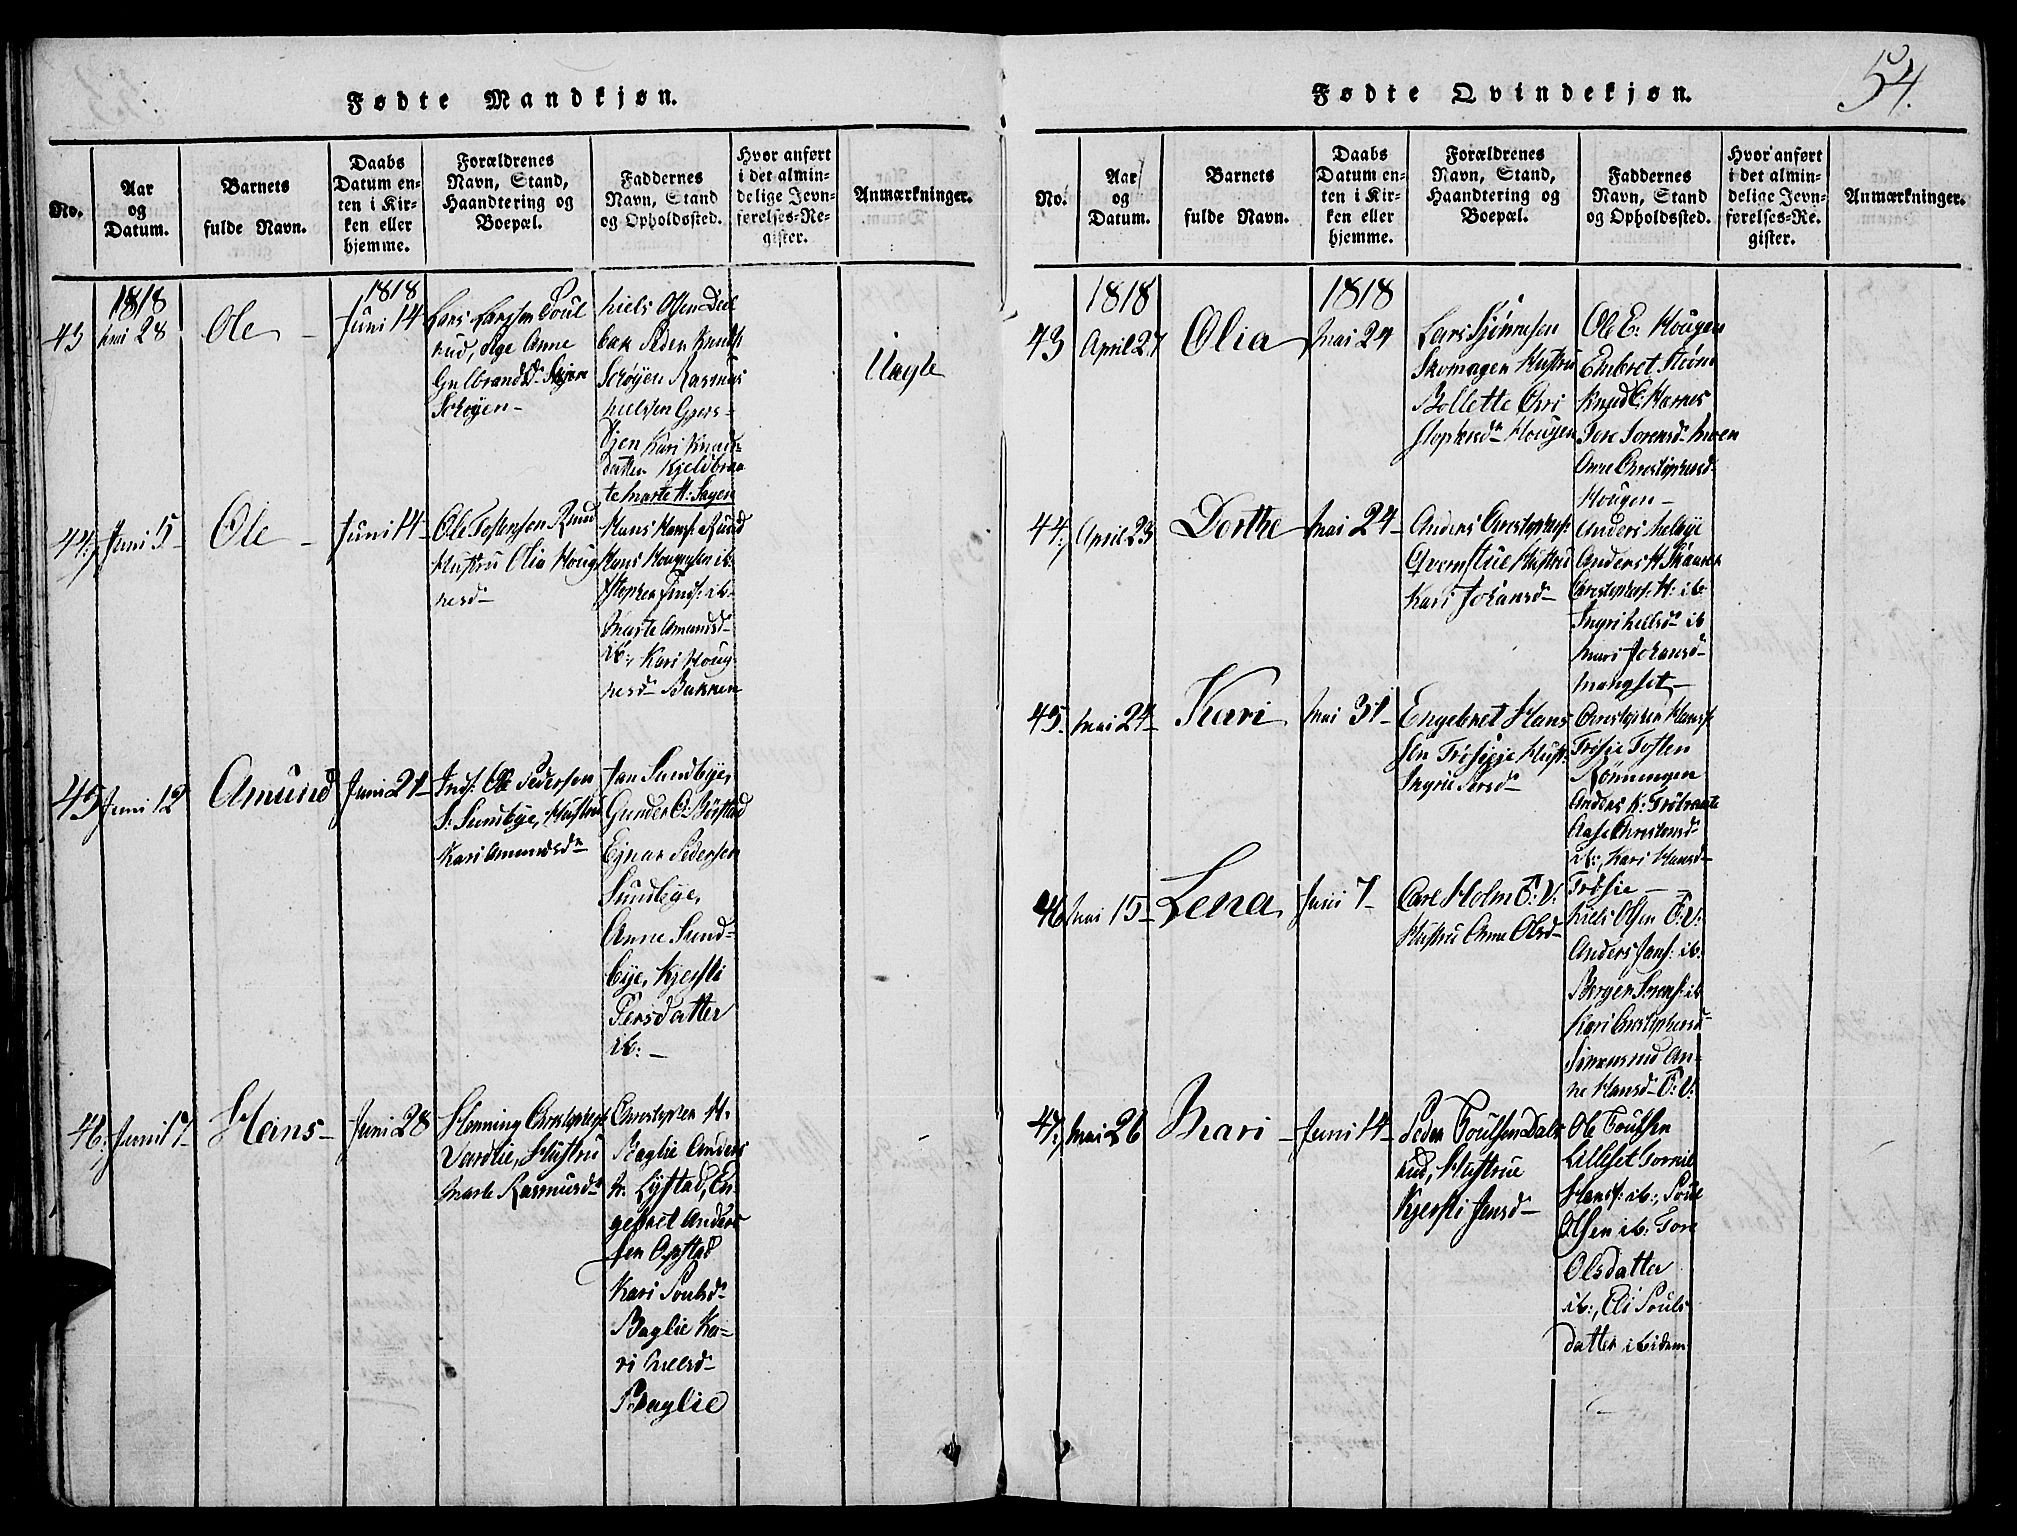 Fødte Mandkjøn.
No.
Aar
og
Datum.
Barnets
fulde Navn.
Daabs
Datum en-
ten i Kir-
ken eller
hjemme.
Forældrenes
Navn, Stand,
Haandtering og
Boepæl.
Faddernes
Navn, Stand
og Opholdssted.
Hvor anført
i det almin-
delige Jevn-
førelses-Re-
gister.
Anmærkninger.
43
1818
Mai 28
Ole
1818
Juni 14
Lars Larssen Poul
rud, Pige Anne
Gulbrandsd
Schøyen
Niels Olsen
Peder Knuds
Schøyen Rasmus
Nielsen
Kari Knuds
datter
te Marte H: Sagen
Uægte
44
Juni 5
Ole
Juni 14
Ole Tostensen Ruud
Hustru Olia Houg
nesd
Hans Hans: Ruud
Hans ib:
ib:
Marte Amundsd
ib:, Kari Houg
nesd Bakken
45
Juni 12
Amund
Juni 21
Ole Pedersen
S: Sundbye, Hustru
Kari Amundsdr
Jan Sundbye,
Gunder O: Børstad
Ejnar Pedersen
Sundbye,
Anne Sund-
bye, Kjersti
Persdatter
ib:
46:
Juni 17
Hans
Juni 28
Henning Christophers
Vardlie, Hustru
Marte Rasmusdr
Christopher H.
Baglie Anders
H. Lystad, En-
gebret Anders
sen Opstad
Kari Poulsd
Baglie Ka-
ri
Baglie
54.
Fødte Qvindekjøn.
No.
Aar
og
Datum.
Barnets
fulde Navn.
Daabs
Datum en-
ten i Kir-
ken eller
hjemme.
Forældrenes
Navn, Stand,
Haandtering og
Boepæl.
Faddernes
Navn, Stand
og Opholdssted.
Hvor anført
i det almin-
delige Jevn-
førelses-Re-
gister.
Anmærkninger.
43
1818
April 27
Olia
1818
Mai 24
Lars
Skomager Hustru
Bollette Chri
stophersdr Hougen
Ole E: Hougen
Embret
Knud E: Harnes
Tore Sorensd Moen
Anne Christophersd
Hougen
44:
April 23
Dorthe
Mai 24
Anders Christophers:
Qvernstue Hustru
Kari Johansd
Anders Melbye
Anders H
Christophers: H: ib
Ingri Nielsdr ib
Mari Johansd
Mangset
45.
Mai 24
Kari
Mai 31
Engebret Hans
sen Trøsje Hust:
Ingrie
Christopher Hans:
Trøsje Tosten
Rønningen
Anders K: Trøbraate
Aase Christensd
ib:, Kari Hansd
Trøsie
46
Mai 15
Lena
Juni 7
Carl Holm E: V:
Hustru Anne Olsd
Niels Olsen E: V:
Anders Jans: ib:
Berger Sorens: ib
Kari Christophersd
An-
ne Hansd E: V:
47
Mai 26
Mari
Juni 14
Peder Poulsen Dals
rud, Hustrue
Kjersti Jensd
Ole Poulsen
Lilleset
Hans: ib:, Poul
Olsen ib: Tore
Olsdatter
ib:, Eli Pouls
datter ibidem